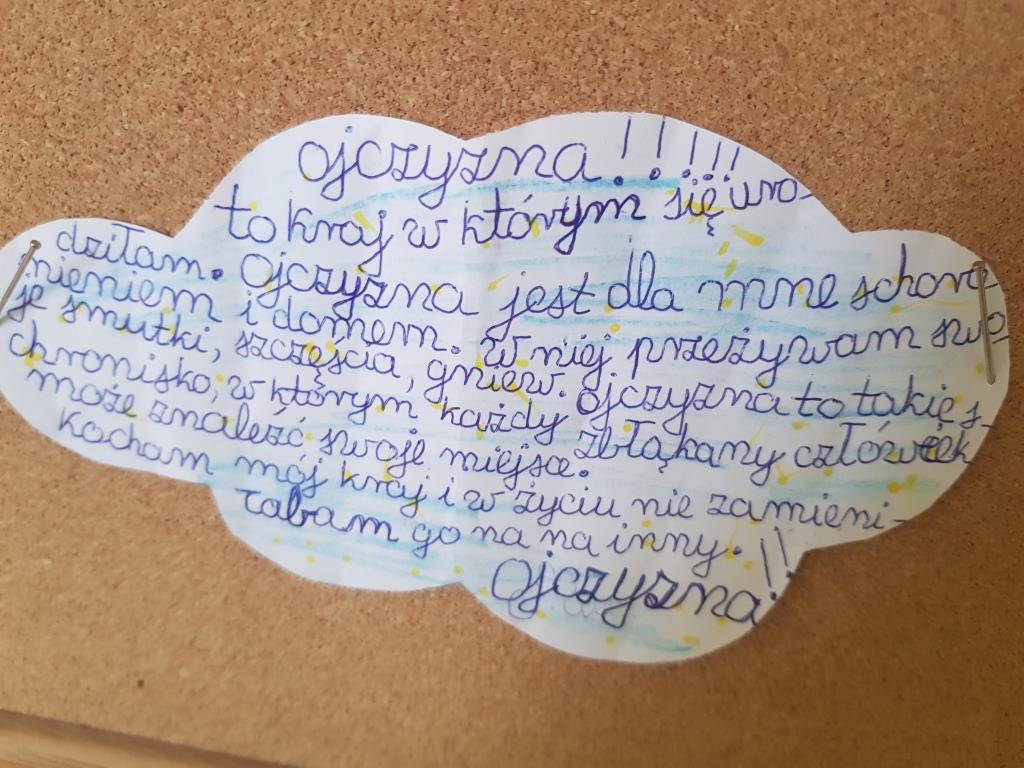 ojczyzna!!!!!
to kraj w którym się uro-
dziłam. Ojczyzna jest dla mne schorz-
nieniem i domem. W niej przeżywam swo
je smutki, szczęścia, gniew. ojczyzna to takie s-
chronisko, w którym każdy zbłąkany człówiek
może znaleźć swoje miejsce.
Kocham mój kraj i w życiu nie zamieni-
łabam go na na inny.
Ojczyzna!!